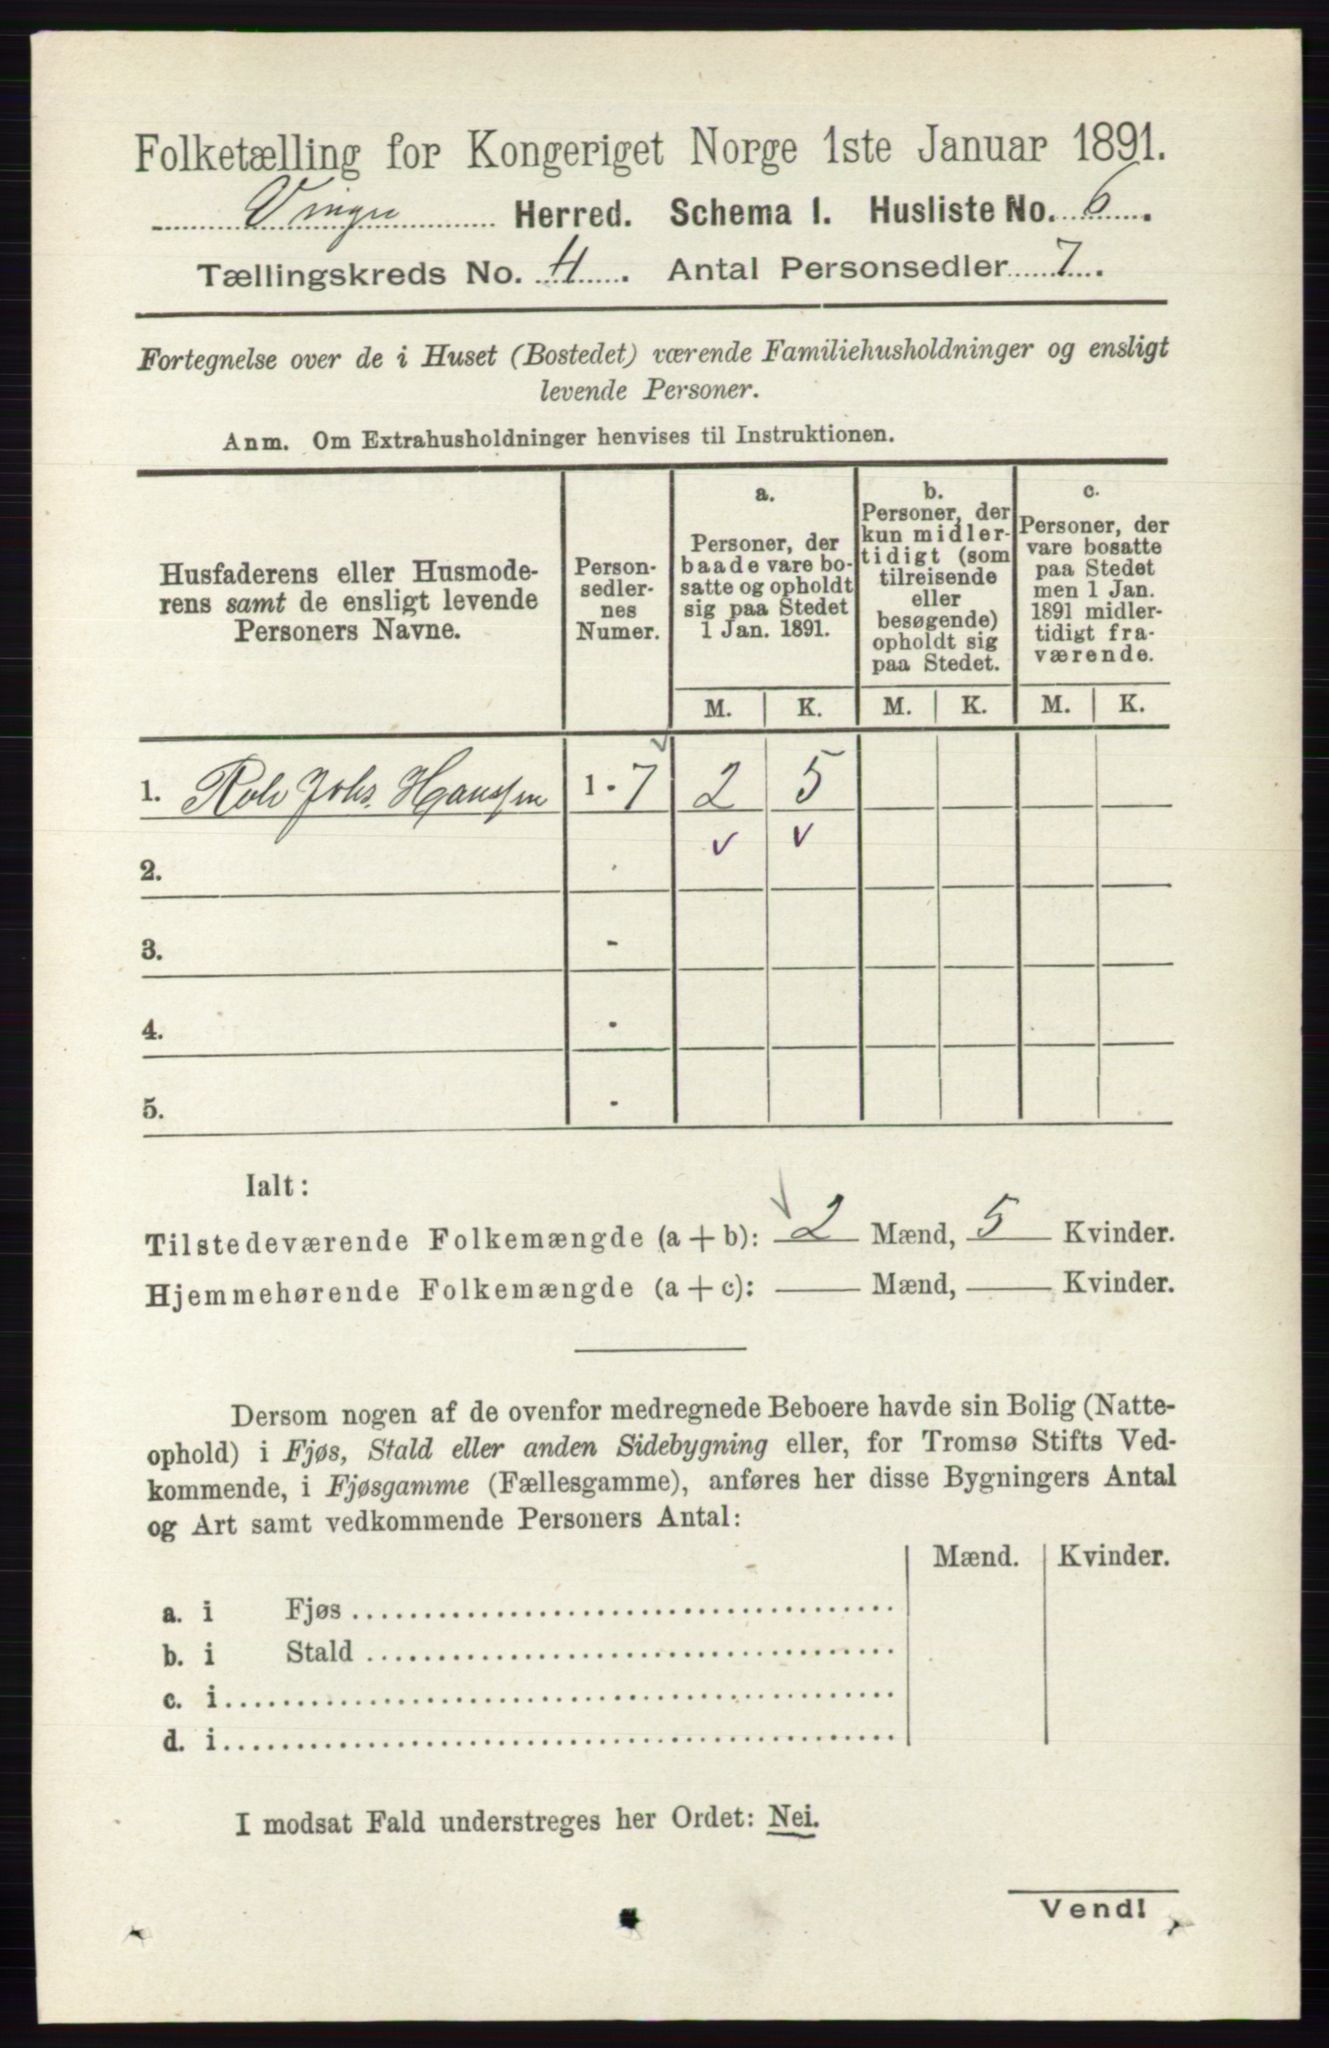 Folketælling for Kongeriget Norge 1ste Januar 1891.
Vinger Herred. Schema I. Husliste No. 6.
Tællingskreds No. 4. Antal Personsedler 7.
Fortegnelse over de i Huset (Bostedet) værende Familiehusholdninger og ensligt
levende Personer.
Anm. Om Extrahusholdninger henvises til Instruktionen.
Husfaderens eller Husmode-
rens samt de ensligt levende
Personers Navne.
Person-
sedler-
nes
Numer.
a.
Personer, der
baade vare bo-
satte og opholdt
sig paa Stedet
1 Jan. 1891.
b.
Personer, der
kun midler-
tidigt (som
tilreisende
eller
besøgende)
opholdt sig
paa Stedet.
c.
Personer, der
vare bosatte
paa Stedet
men 1 Jan.
1891 midler-
tidigt fra-
værende.
M. K. M. K. M. K.
1. Johs. Hanssen 1 - 7 2 5
2.
3. -
4. -
5. -
Ialt:
Tilstedeværende Folkemængde (a + b): 2 Mænd, 5 Kvinder.
Hjemmehørende Folkemængde (a + c): Mænd, Kvinder.
Dersom nogen af de ovenfor medregnede Beboere havde sin Bolig (Natte-
ophold) i Fjøs, Stald eller anden Sidebygning eller, for Tromsø Stifts Ved-
kommende, i Fjøsgamme (Fællesgamme), anføres her disse Bygningers Antal
og Art samt vedkommende Personers Antal:
Mænd. Kvinder.
a. i Fjøs
b. i Stald
c. i
d. i
I modsat Fald understreges her Ordet: Nei.
Vend!